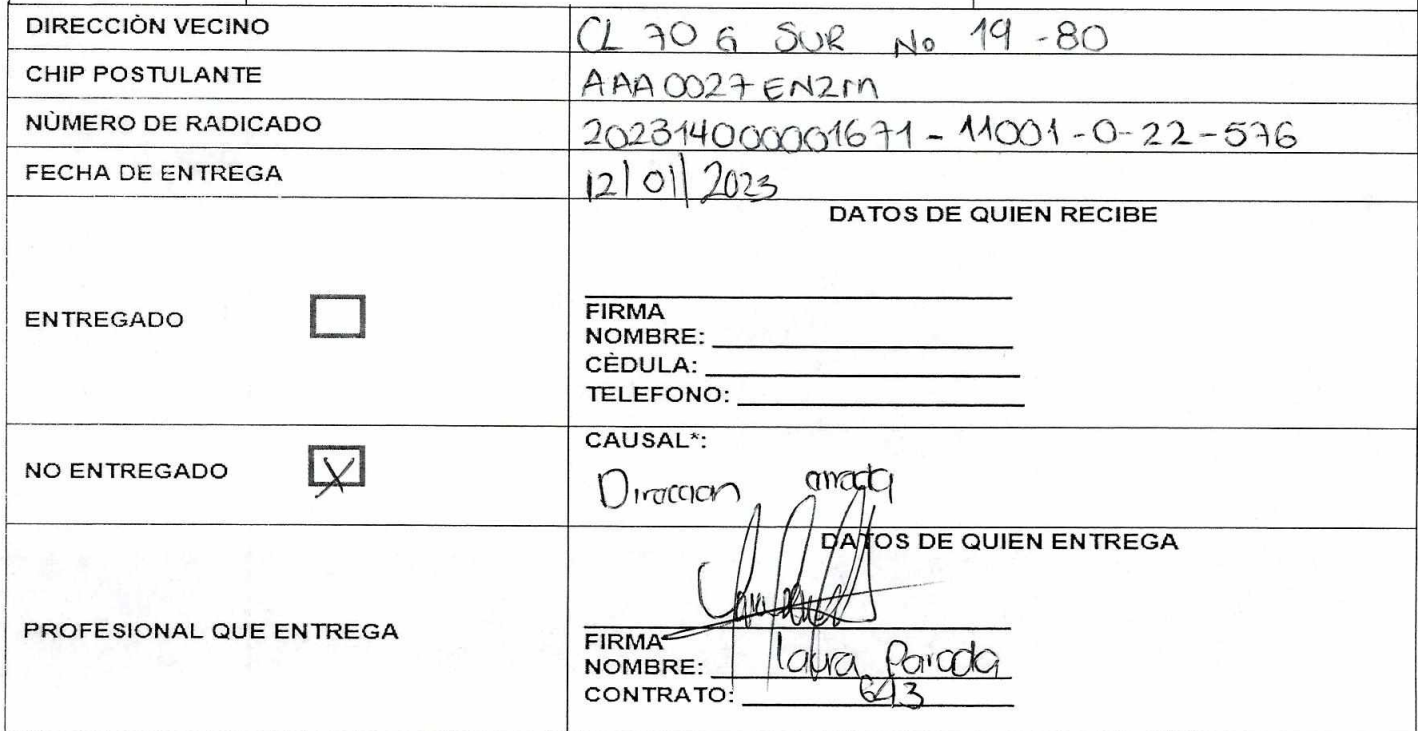 DIRECCIÒN VECINO CL 70 G SUR No 19 - 80
CHIP POSTULANTE AAA0027ENZM
NÙMERO DE RADICADO 202314000001671 - 11001 - 0 - 22 - 576
FECHA DE ENTREGA 12/01/2023
DATOS DE QUIEN RECIBE
ENTREGADO
FIRMA
NOMBRE:
CÈDULA:
TELEFONO:
NO ENTREGADO X
CAUSAL*:
Direccion errada
DATOS DE QUIEN ENTREGA
PROFESIONAL QUE ENTREGA
FIRMA
NOMBRE: Laura Parada
CONTRATO: 643